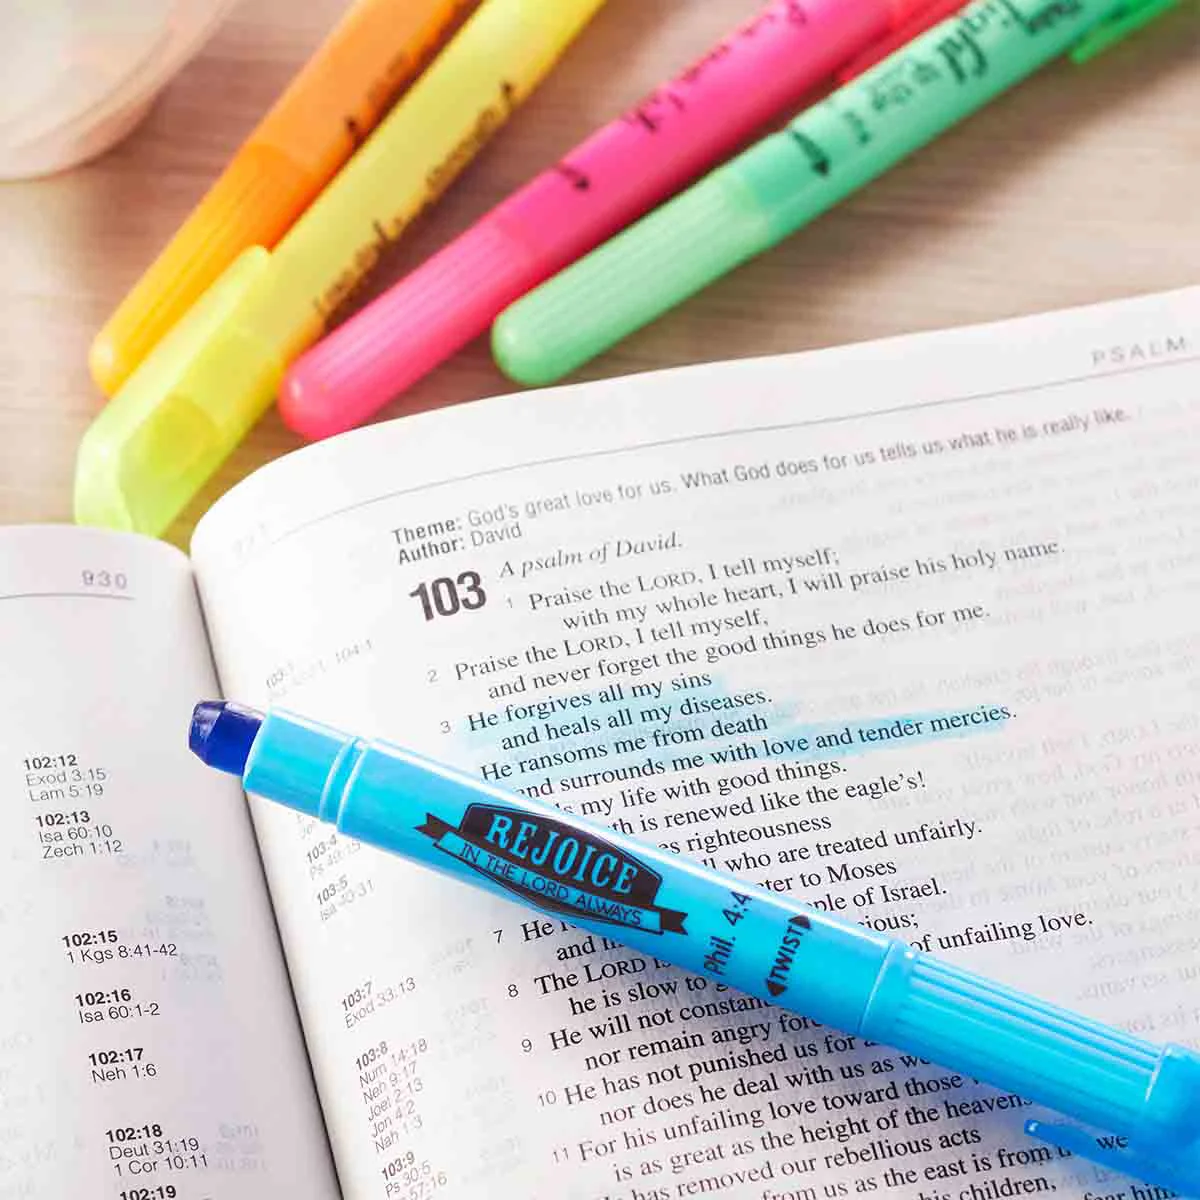 PSALM
Theme: God's great love for us. What God does for us tells us what he is really like.
Author: David
A psalm of David.
103
1 Praise the LORD, I tell myself;
with my whole heart, I will praise his holy name.
2 Praise the LORD, I tell myself,
and never forget the good things he does for me.
3 He forgives all my sins
and heals all my diseases.
He ransoms me from death
nd surrounds me with love and tender mercies.
my life with good things.
th is renewed like the eagle's!
es righteousness
who are treated unfairly.
ter to Moses
ple of Israel.
7 He
cious;
and
of unfailing love.
8 The LORD
he is slow to
9 He will not constan
nor remain angry
10 He has not punished us for
nor does he deal with us as we
11 For his unfailing love toward those
is as great as the height of the heavens
we
has removed our rebellious acts
from us as the east is from
his children,
930
102:12
Exod 3:15
Lam 5:19
102:13
Isa 60:10
Zech 1:12
102:15
1 Kgs 8:41-42
102:16
Isa 60:1-2
102:17
Neh 1:6
102:18
Deut 31:19
1 Cor 10:11
102:19
103:1
104:1
103:4
103:5
103:7
Exod 33:13
103:8
Num 14:18
Neh 9:17
Joel 2:13
Jon 4:2
Nah 1:3
103:9
Ps 30:5
57:16
REJOICE
IN THE LORD ALWAYS
Phil. 4:4
TWIST